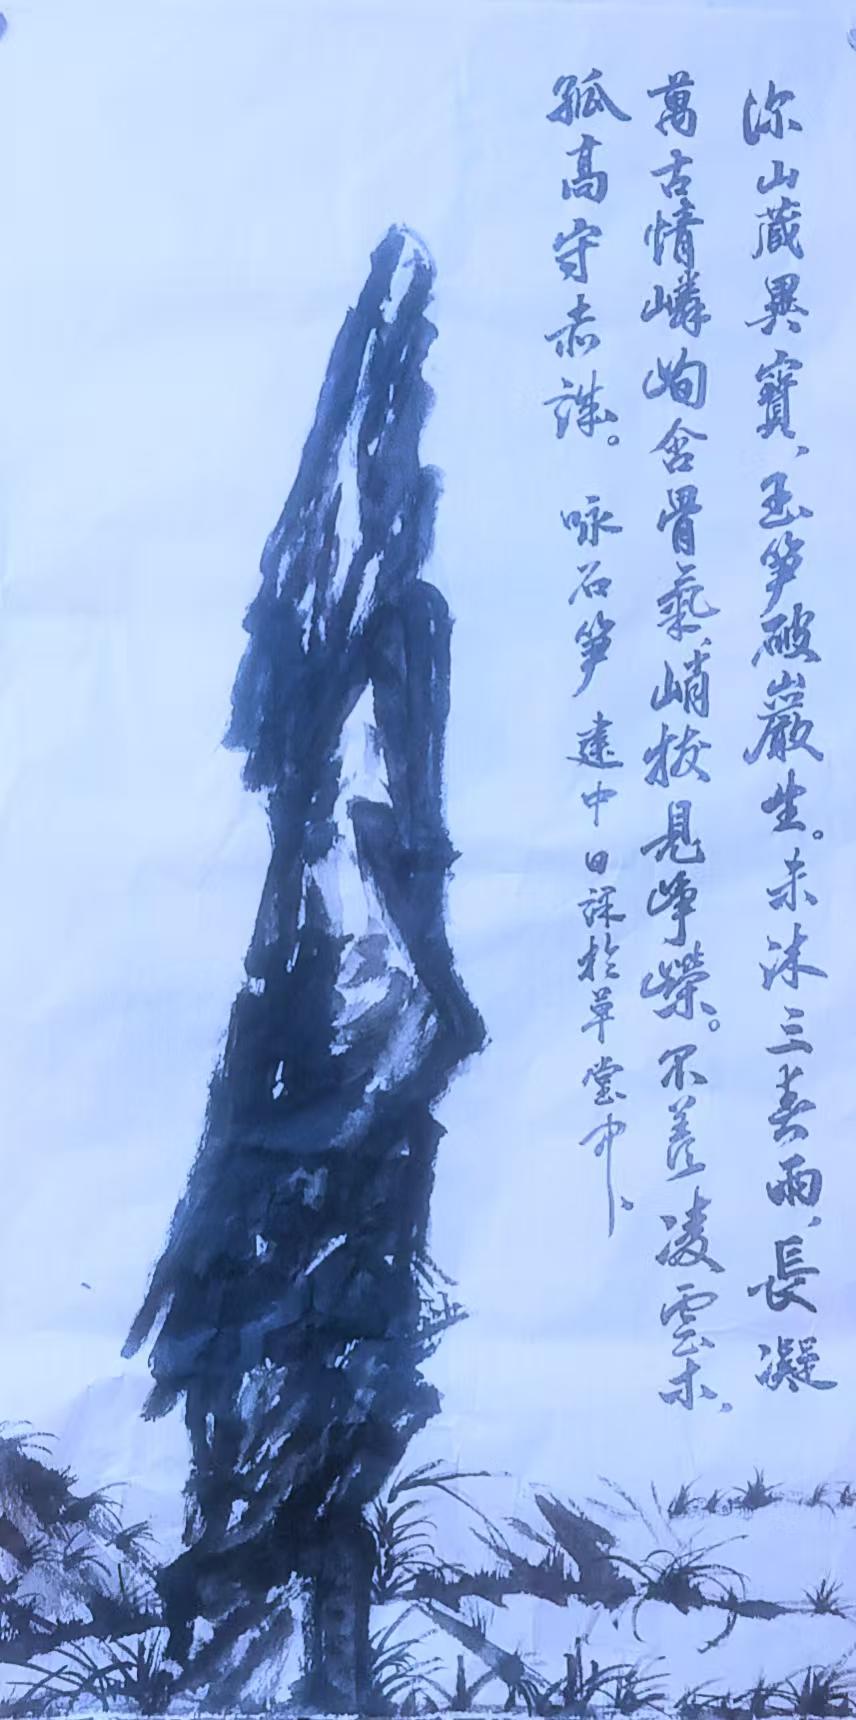 深山蔵異寶、玉笋破巖生。未沐三春雨、長凝
萬古情嶙峋含骨氣、峭拔見崢嶸。不羨凌雲木、
孤高守赤誠。 咏石笋 建中日課於草堂中、